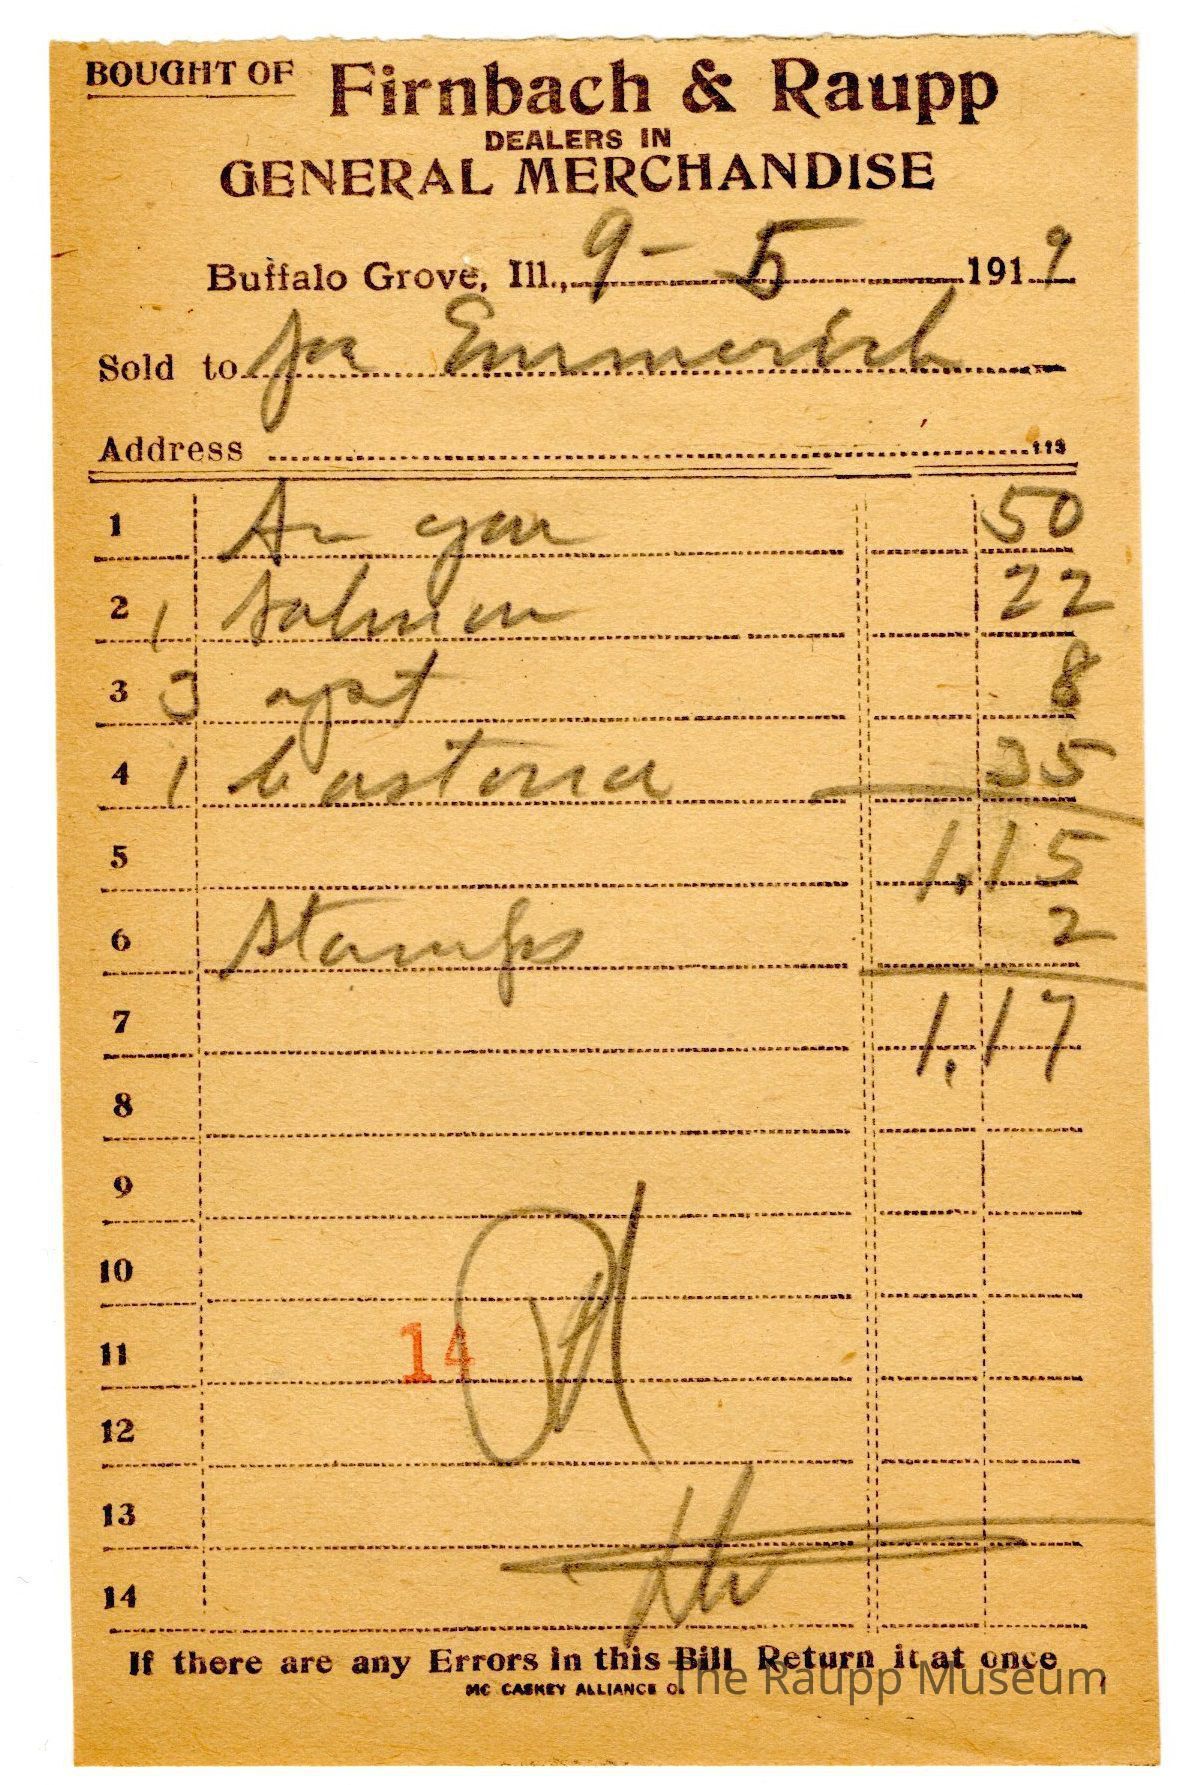 BOUGHT OF Firnbach & Raupp
DEALERS IN
GENERAL MERCHANDISE
Buffalo Grove, Ill., 9-5 1919
Sold to Joe Emmerich
Address 113
1 50
2 1 Salmon 22
3 3 8
4 1 Castoria 35
5 1.15
6 Stamps 2
7 1.17
8
9
10
11 14
12
13
14
If there are any Errors in this Bill Return it at once
MC CASKEY ALLIANCE O.
The Raupp Museum